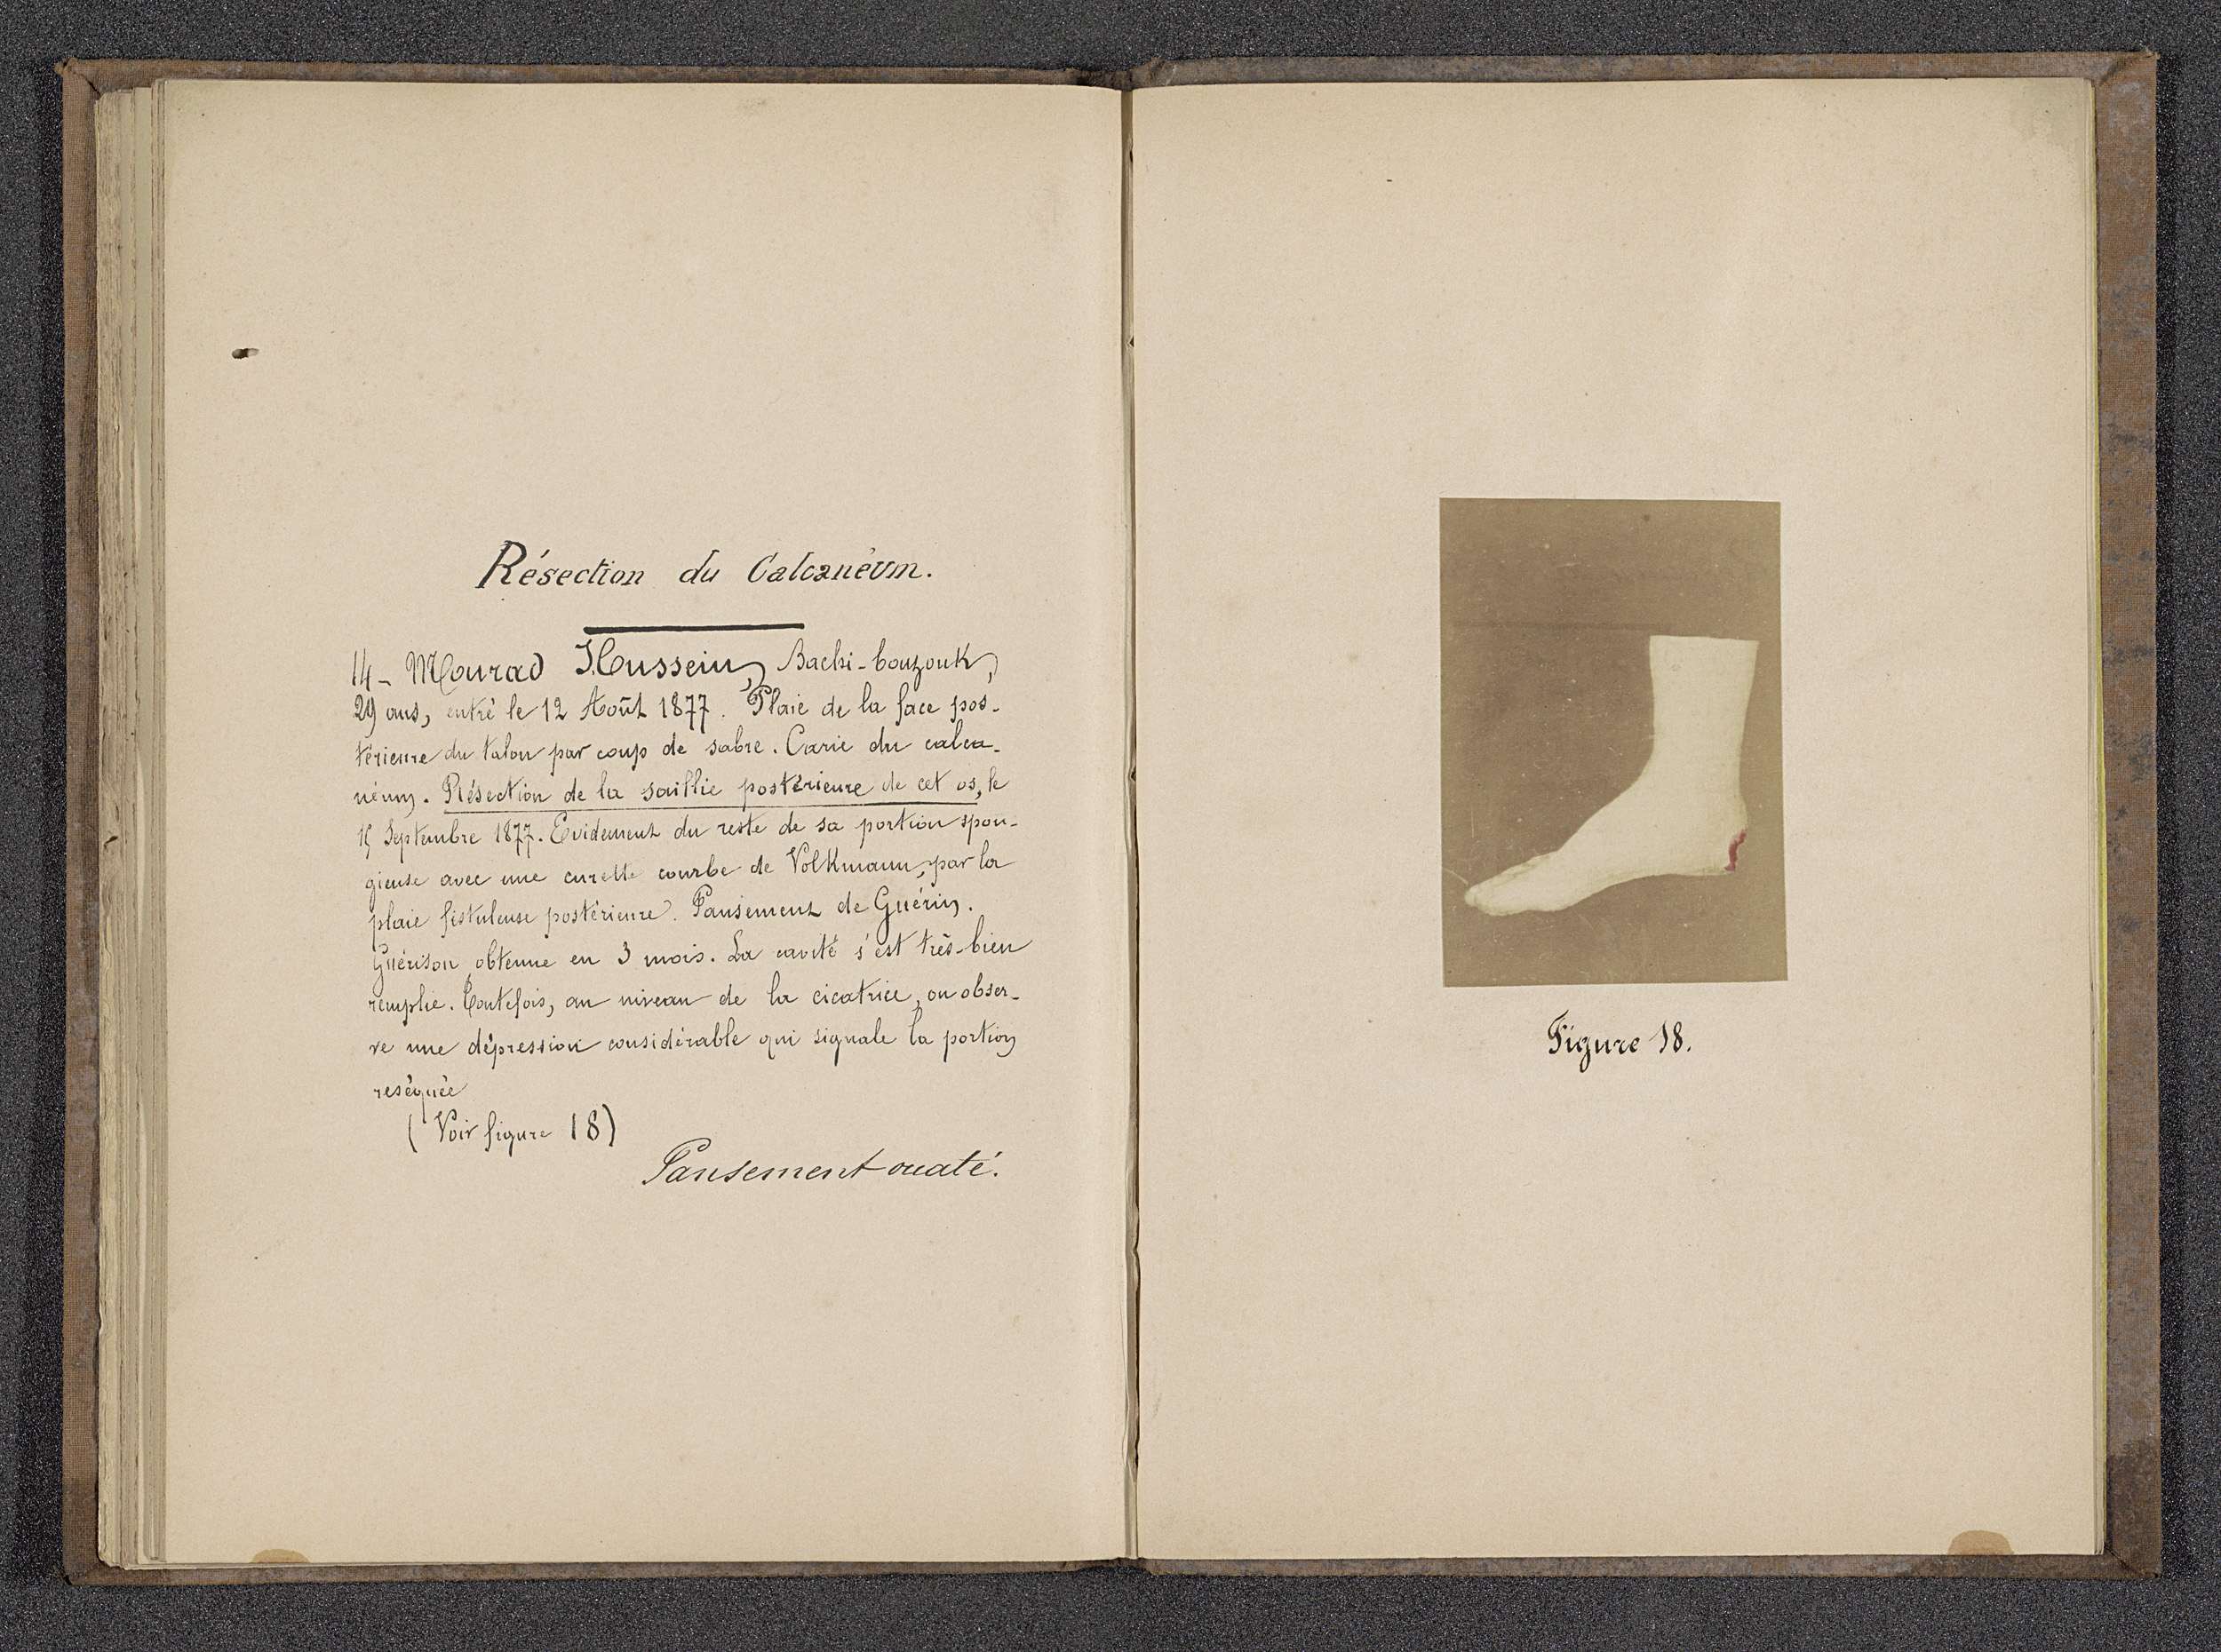 Résection du Calcanéum.
14 - Mourad Hussein, Bachi-bouzouk,
29 ans, entré le 12 Août 1877. Plaie de la face pos-
térieure du talon par coup de sabre. Carie du calca-
néum. Résection de la saillie postérieure de cet os, le
Septembre 1877. Evidement du reste de sa portion spon-
gieuse avec une curette courbe de Volkmann, par la
plaie fistuleuse postérieure. Pansement de Guérin.
Guérison obtenue en 3 mois. La cavité s'est très-bien
remplie. Toutefois, au niveau de la cicatrice, on obser-
ve une dépression considérable qui signale la portion
reséquée
(Voir figure 18)
Pansement ouaté.
Figure 18.